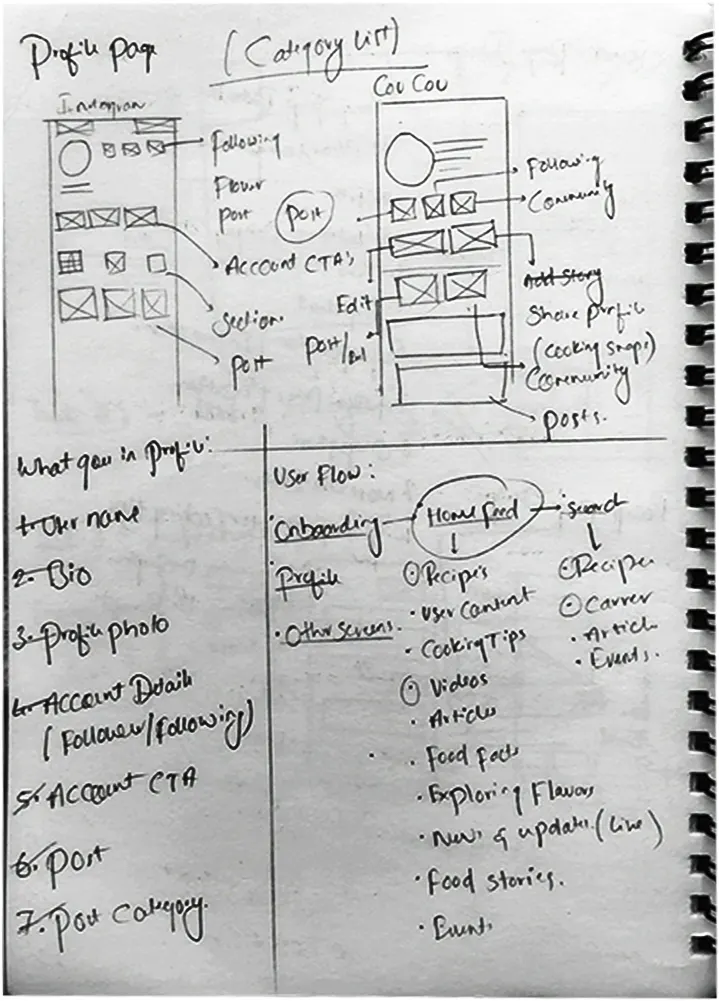 Profile Page
(Category List)
Instagram
Following
Post
Account CTA's
Section
Post
Cou Cou
Post
Following
Community
Edit
Post/
Add Story
Share Profile
(Cooking snaps)
Community
Posts.
What you in Profile:
1. User name
2. Bio
3. Profile photo
4. Account Details
(Follower/Following)
5. Account CTA
6. Post
7. Post Category.
User Flow:
Onboarding
Home feed
Search
Profile
• Other Screens.
Recipes
• User Content
• Cooking Tips
Videos
• Articles
• Food Facts
• Exploring Flavors
• News & updates (Live)
• Food Stories.
• Events
Recipes
• Article
• Events.